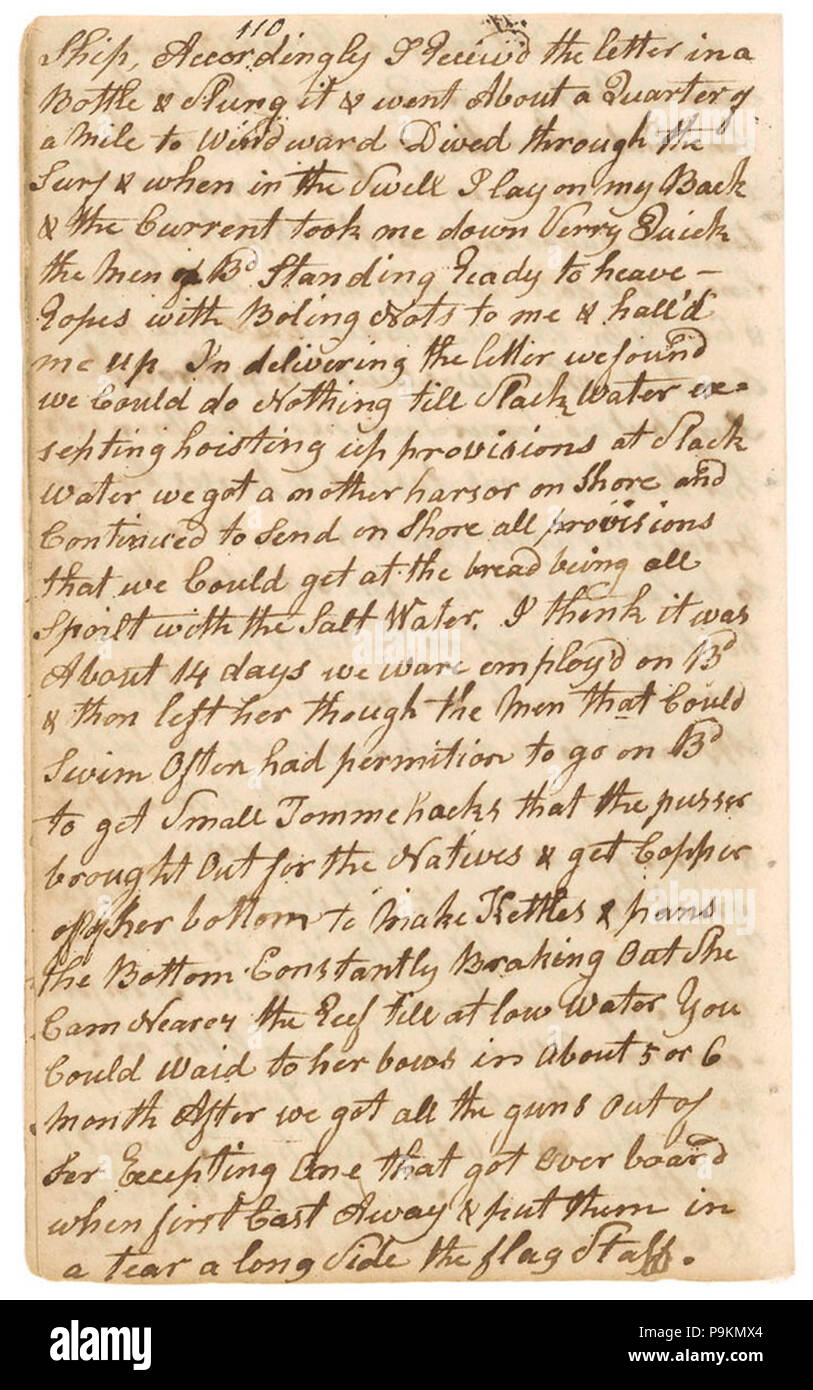 110
Ship, Accordingly I Receiv'd the letter in a
Bottle & Slung it & went About a Quarter of
a Mile to Windward Dived through the
Surf & when in the Swell I lay on my Back
& the Current took me down Verry Quick
the Men of Bd Standing Ready to heave –
Ropes with Boling Nots to me & hall'd
me up In delivering the letter we found
we Could do Nothing till Slack Water ex=
septing hoisting up provisions at Slack
Water we got a nother harsor on Shore and
Continued to Send on Shore all provisions
that we Could get at the bread being all
Spoilt with the Salt Water. I think it was
About 14 days we ware employ'd on Bd
& thon left her though the Men that Could
Swim Often had permition to go on Bd
to get Small Tommehacks that the purser
brought Out for the Natives & get Copper
off of her bottom to Make Kettles & pans
the Bottom Constantly Braking Out She
Cam Nearer the Reef till at low Water You
Could Waid to her bows in About 5 or 6
Month After we got all the guns Out of
her Excepting One that got Over board
when first Cast Away & put them in
a tear a long Side the flag Staff.
alamy
alamy
alamy
alamy
alamy
Image ID: P9KMX4
www.alamy.com